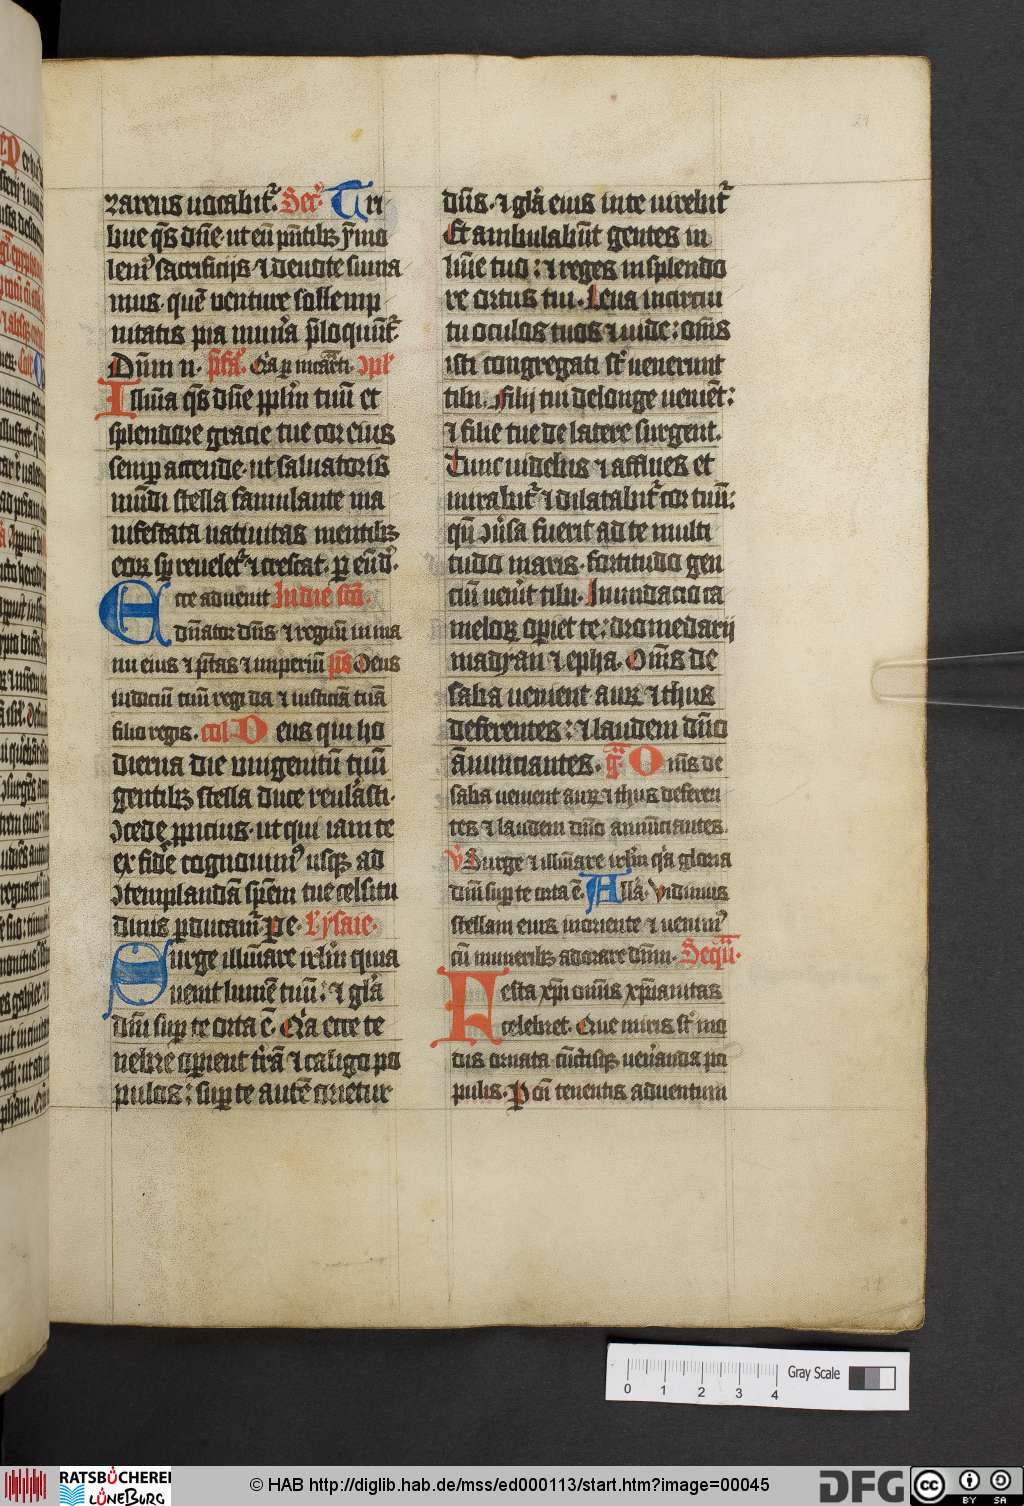 zareus uocabit᷑. Secr̄. Tri
bue q̄s dn̄e· ut eū pn̄tibꝫ ȳmo
lem᷒ sacrificijs ⁊ deuote suma
mus· quē uenture sollemp
nitatis pia mun̄a p̄loquūt᷑.
Dn̄m n̄. p̄fa᷑. Qr̄a ꝑ incar̄ti. ꝯpl᷑
Illūia q̄s dn̄e ppl̄m tuū et
splendore gracie tue cor eius
semꝑ accende· ut saluatoris
mūdi stella famulante ma
nifestata natiuitas mentibꝫ
eoꝝ sꝑ reuelet᷑ ⁊ crescat. ꝑ eūd᷒.
Ecce aduenit In die sc̄o.
dn̄ator dn̄s ⁊ regnū in ma
nu eius ⁊ p̄tas ⁊ imperiū p̄s Deus
iudiciū tuū regi da ⁊ iusticiā tuā
filio regis. coll᷑ Deus qui ho
dierna die vnigenitū tuū
gentibꝫ stella duce reuelasti·
ꝯcede ꝓpicius· ut qui iam te
ex fide cognouim᷒ usqꝫ ad
ꝯtemplandā spēm tue celsitu
dinis ꝑducam᷑. ꝑ e. Lysaie·
Surge illūiare irl̄m quia
uenit lumē tuū: ⁊ gl̄a
dn̄i suꝑ te orta ē. Qr̄a ecce te
nebre oꝑient t̄rā ⁊ caligo po
pulos: suꝑ te autē orietur
dn̄s. ⁊ gl̄a eius in te uidebit᷑
Et ambulabūt gentes in
lumīe tuo: ⁊ reges in splendo
re ortus tui. Leua in circui
tu oculos tuos ⁊ uide: om̄s
isti congregati st̄ uenerunt
tibi. Filij tui de longe ueniēt:
⁊ filie tue de latere surgent.
Tunc uidebis ⁊ afflues et
mirabit᷑ ⁊ dilatabit᷑ cor tuū:
qn̄ ꝯu᷑sa fuerit ad te multi
tudo maris· fortitudo gen
ciū uen̄it tibi. Inundacio ca
meloꝝ oꝑiet te: dromedarij
madyan ⁊ epha. Om̄s de
saba uenient auꝝ ⁊ thus
deferentes: ⁊ laudem dn̄o
ānunciantes. gr̄. Om̄s de
saba uenient auꝝ ⁊ thus deferen
tes ⁊ laudem dn̄o annūciantes.
V᷑ Surge ⁊ illūiare irl̄m q̄a gloria
dn̄i suꝑ te orta ē. All᷑a. Vidimus
stellam eius in oriente ⁊ uenim᷒
cū muneribꝫ adorare dn̄m. Seqū.
Festa xp̄i omnis xp̄ianitas
celebret. Que miris st̄ mo
dis ornata cūctisqꝫ uen̄anda po
pulis. ꝑ oī tenentis aduentum
Gray Scale
0 1 2 3 4
RATSBÜCHEREI
LÜNEBURG
© HAB http://diglib.hab.de/mss/ed000113/start.htm?image=00045
DFG
cc
BY SA